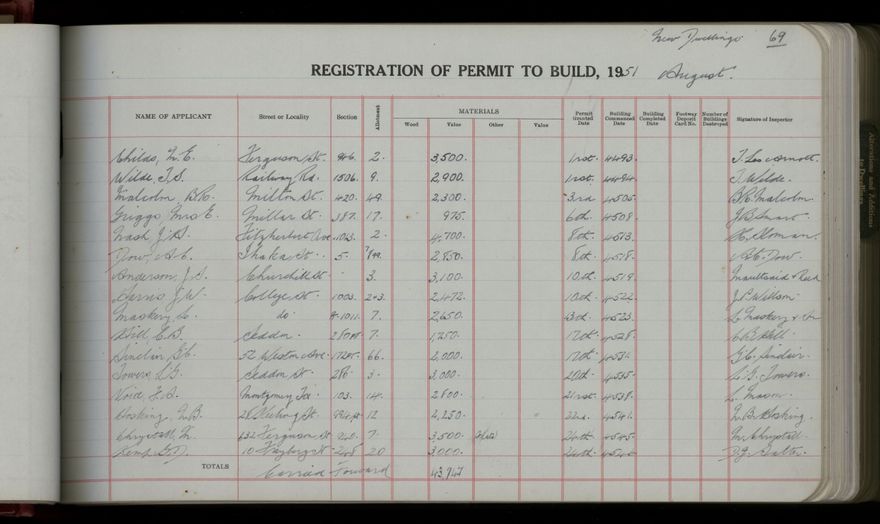 New Dwellings 69
REGISTRATION OF PERMIT TO BUILD, 1951 August.
NAME OF APPLICANT Street or Locality Section Allotment MATERIALS Wood Value Other Value Permit Granted Date Building Commenced Date Building Completed Date Footway Deposit Card No. Number of Buildings Destroyed Signature of Inspector
Childs, 2. 3,500. 1st. 4493.
Wilde, T.S. Railway Rd. 1506. 9. 2,900. 1st. 4494. T. Wilde.
Malcolm, B.R. Milton St. 420. 49. 2,300. 3rd 4505. B.R. Malcolm
Griggs Mrs E. Millar St. 387. 17. 975. 6th. 4508.
Nash J. Fitzherbert Ave. 2. 4,700. 8th. 4513.
Dow, A.E. Ihaka St. 5. 2,850. 8th. 4518. A.E. Dow.
Anderson, J. Churchill St. 3. 3,100. 10th. 4519.
J.W. College St. 1003. 2+3. 2,472. 10th. 4522. J.P. Willson
Maskery, do 7. 2,650. 4523. Maskery
C.B. Seddon. 7. 1,250. 17th. 4528.
Sinclair, G.C. 52 Weston Ave. 66. 2,000. 17th. 4531. G.C. Sinclair.
Towers, L.G. Seddon St. 286. 3. 3,000. 20th. 4535. L.G. Towers.
Montgomery Tce. 103. 14. 2800. 21st. 4538. Mason
Hosking, 28 St. 12 2,250. 22nd. 4541. Hosking.
Chrystall, M. 632 Ferguson St. 240. 7. 3,500 24th. 4545. M. Chrystall.
Kemp 10 Freyberg St. 248. 20 3000. 24th. 4546
TOTALS Carried Forward 43,747
Alterations and Additions to Dwellings